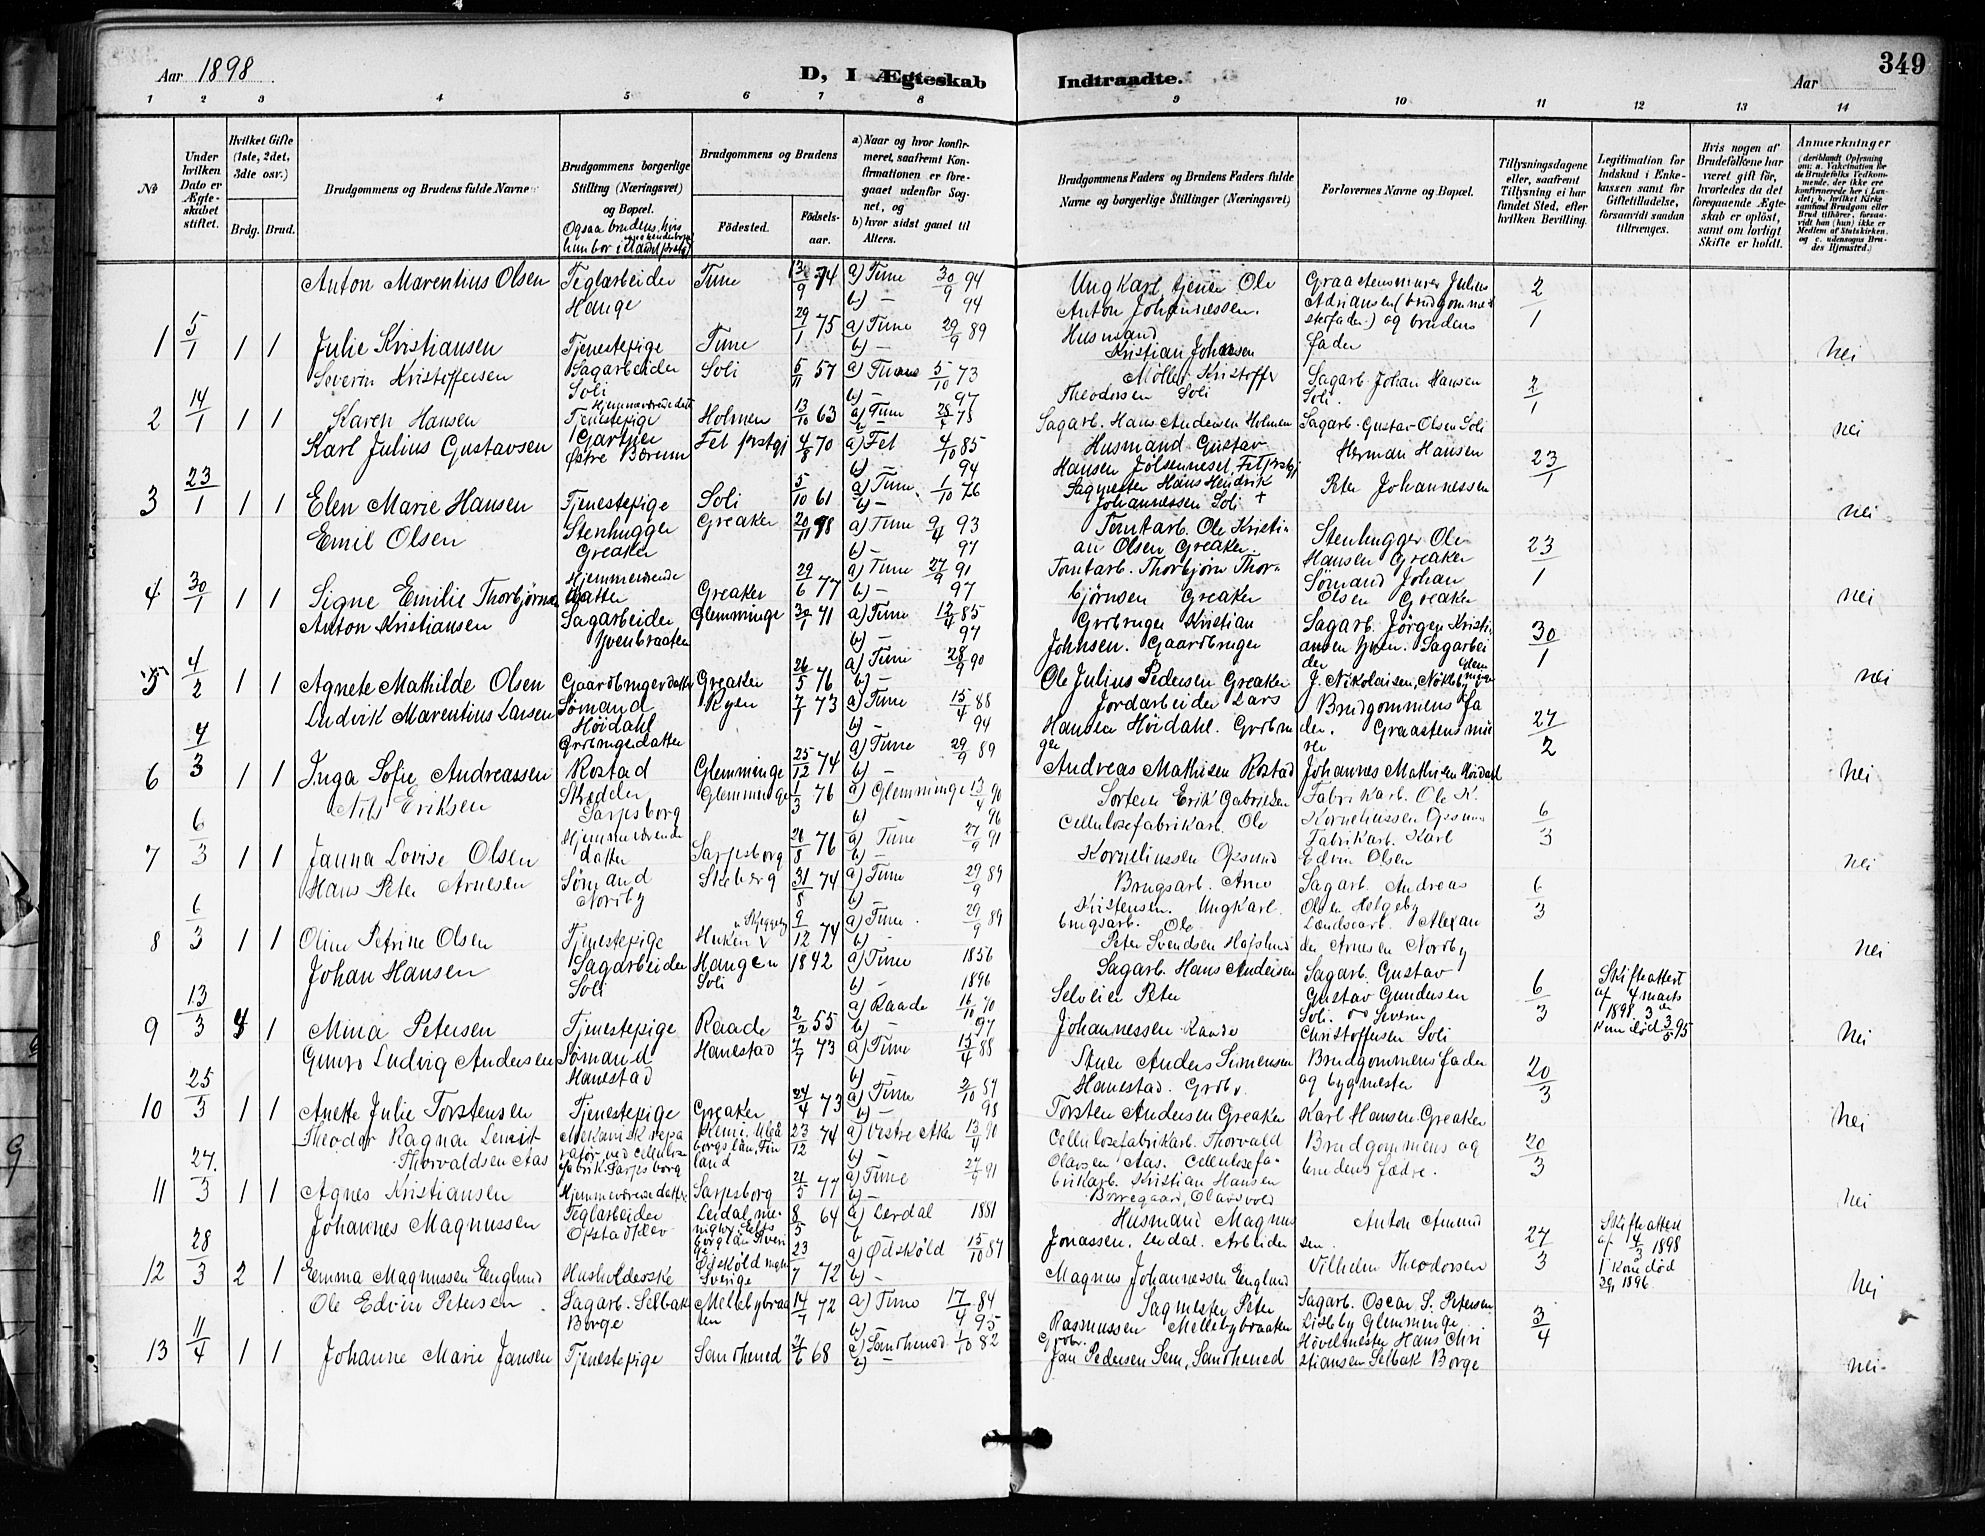 Aar 1898
D, I Ægteskab
Indtraadte.
Aar
349
1 2 3 4 5 6 7 8 9 10 11 12 13 14
No
Under hvilken Dato er Ægteskabet stiftet.
Hvilket Gifte (1ste, 2det, 3die osv.)
Brdg. Brud.
Brudgommens og Brudens fulde Navne
Brudgommens borgerlige Stilling (Næringsvei) og Bopæl.
Ogsaa brudens, hvis hun bor i
Brudgommens og Brudens
Fødested.
Fødselsaar.
a) Naar og hvor konfirmeret, saafremt Konfirmationen er foregaaet udenfor Sognet, og
b) hvor sidst gaaet til Alters.
Brudgommens Faders og Brudens Faders fulde Navne og borgerlige Stillinger (Næringsvei)
Forlovernes Navne og Bopæl.
Tillysningsdagene eller, saafremt Tillysning ei har fundet Sted, efter hvilken Bevilling.
Legitimation for Indskud i Enkekassen samt for Giftetilladelse, forsaavidt saadan tiltrænges.
Hvis nogen af Brudefolkene har været gift før, hvorledes da det foregaaende Ægteskab er opløst, samt om lovligt Skifte er holdt.
Anmærkninger
Anton Marentius Olsen Teglarbeider Hauge Tune 74 a) Tune 30/9 94 b) – 94 Ungkarl tjener Ole Anton Johannessen. Graastensmurer Julius Adriansen og brudens fader 2/1
1 5/1 1 1 Julie Kristiansen Tjenestepige Tune 29/1 75 a) Tune 29/9 89 b) – Husmand Kristian Johansen nei
Severin Kristoffersen Sagarbeider Soli Soli 5/11 57 a) Tune 5/10 73 b) – 97 Møller Kristoffer Theodorsen Soli Sagarb. Johan Hansen Soli. 2/1
2 14/1 1 1 Karen Hansen Tjenestepige Holmen 13/10 63 a) Tune b) – Sagarb. Hans Andersen Holmen Sagarb. Gustav Olsen Soli nei
Karl Julius Gustavsen Gartner Østre Bærum Fet prstgj 4/8 70 a) Fet 4/10 85 b) – 94 Husmand Gustav Hansen Herman Hansen 23/1
3 23/1 1 1 Elen Marie Hansen Tjenestepige Soli 5/10 61 a) Tune 1/10 76 b) – Sagmester Hans Hendrik Johannessen Soli + Peter Johannessen nei
Emil Olsen Stenhugger Greaker Greaker 20/11 78 a) Tune 9/4 93 b) – 97 Tomtarb. Ole Kristian Olsen Greaker. Stenhugger Ole Hansen Greaker 23/1
4 30/1 1 1 Signe Emilie Thorbjørnsen Hjemmeværende datter Greaker 29/6 77 a) Tune 27/9 91 b) – 97 Tomtarb. Thorbjørn Thorbjørnsen Greaker Sømand Johan Olsen Greaker nei
Anton Kristiansen Sagarbeider Yvenbraaten Glemminge 30/1 71 a) Tune 12/4 85 b) – 97 Grdbruger Kristian Johnsen. Gaardbruger Sagarb. Jörgen Kristiansen Yven. Sagarbeider 30/1
5 4/2 1 1 Agnete Mathilde Olsen Gaardbrugerdatter Greaker 26/5 76 a) Tune 28/9 90 b) – Ole Julius Pedersen Greaker J. Nikolaisen, nei
Ludvik Marentius Larsen Sømand Høidahl Ryen 7/1 73 a) Tune 15/4 88 b) – 94 Jordarbeider Lars Hansen Høidahl. Grdbruger Brudgommens fader. Graastensmurer 27/2
6 4/3 1 1 Inga Sofie Andreassen Grdbrugerdatter Rostad Glemminge 25/12 74 a) Tune 29/9 89 b) – Andreas Mathisen Rostad Johannes Mathisen Høidahl nei
Nils Eriksen Skrædder Sarpsborg Glemminge 1/3 76 a) Glemminge 13/4 90 b) – 96 Sorterer Erik Gabrielsen Cellulosefabrikarb. Ole Fabrikarb. Ole K. Korneliussen Opsund 6/3
7 6/3 1 1 Janna Lovise Olsen Hjemmeværende datter Sarpsborg 20/8 76 a) Tune 27/9 91 b) – Korneliussen Opsund Fabrikarb. Karl Edvin Olsen nei
Hans Peter Arnesen Sømand Nordby Skeberg 31/8 74 a) Tune 29/9 89 b) – Brugsarb. Arne Kristensen. Ungkarl Sagarb. Andreas Olsen Helgeby 6/3
8 6/3 1 1 Oline Petrine Olsen Tjenestepige Huken v 9/12 74 a) Tune 29/9 89 b) – brugsarb. Ole Peter Svendsen Hafslund Lændsearb. Alexander Arnesen Nordby nei
Johan Hansen Sagarbeider Soli Haugen Soli 1842 a) Tune 1856 b) – 1896 Sagarb. Hans Andersen Sagarb. Gustav Gustav Gundersen Soli. og Severin 6/3 Skifteattest af 4 marts 1898 3die Kone død 3/5 95
9 13/3 4 1 Mina Petersen Tjenestepige Raade 2/2 55 a) Raade 16/10 70 b) – 97 Selveier Peter Johannessen Raade Christoffersen Soli nei
Gunerd Ludvig Andersen Sømand Hanestad Hanestad 7/7 73 a) Tune 15/4 88 b) – Stuer Anders Simensen Hanestad. Grdbr. Brudgommens fader og bygmester 20/3
10 25/3 1 1 Anette Julie Torstensen Tjenestepige Greaker 24/4 73 a) Tune b) – 98 Torsten Andersen Greaker Karl Hansen Greaker nei
Theodor Ragnar Thorvaldsen Aas Mekanisk reparatør ved cellulosefabrik Sarpsborg Finland 23/12 74 a) Vestre Aker 13/4 90 b) – Cellulosefabrikarb. Thorvald Olavsen Aas. Cellulosefabrikarb. Brudgommens og brudens fædre. 20/3
11 27/3 1 1 Agnes Kristiansen Hjemmeværende datter Sarpsborg 21/5 77 a) Tune 27/9 91 b) – Kristian Hansen Borregaard, Olavsvold nei
Johannes Magnussen Teglarbeider Opstad Elfsborg län Sverige 8/5 64 a) Lerdal 1881 b) Husmand Magnus Jonassen. Lerdal. Arbeider Anton Amundsen. 27/3 Skifteattest af 4/3 1898 1 kone død 20/11 1896
12 28/3 2 1 Emma Magnussen Englund Husholderske Ødskøld Sverige 23/7 72 a) Ødskøld 15/10 87 b) – Magnus Johannessen Englund Vilhelm Theodorsen nei
Ole Edvin Petersen Sagarb. Selbak Borge Mellebybraaten 14/7 72 a) Tune 17/4 84 b) – 95 Sagmester Peter Rasmussen Mellebybraaten Sagarb. Oscar S. Petersen Lisleby Glemminge 3/4
13 11/4 1 1 Johanne Marie Jansen Tjenestepige Sandhered 2/6 68 a) Sandhered 1/10 82 b) – Grdbr. Jan Pedersen Sem, Sandhered Høvelmester Hans Christiansen Selbak Borge nei